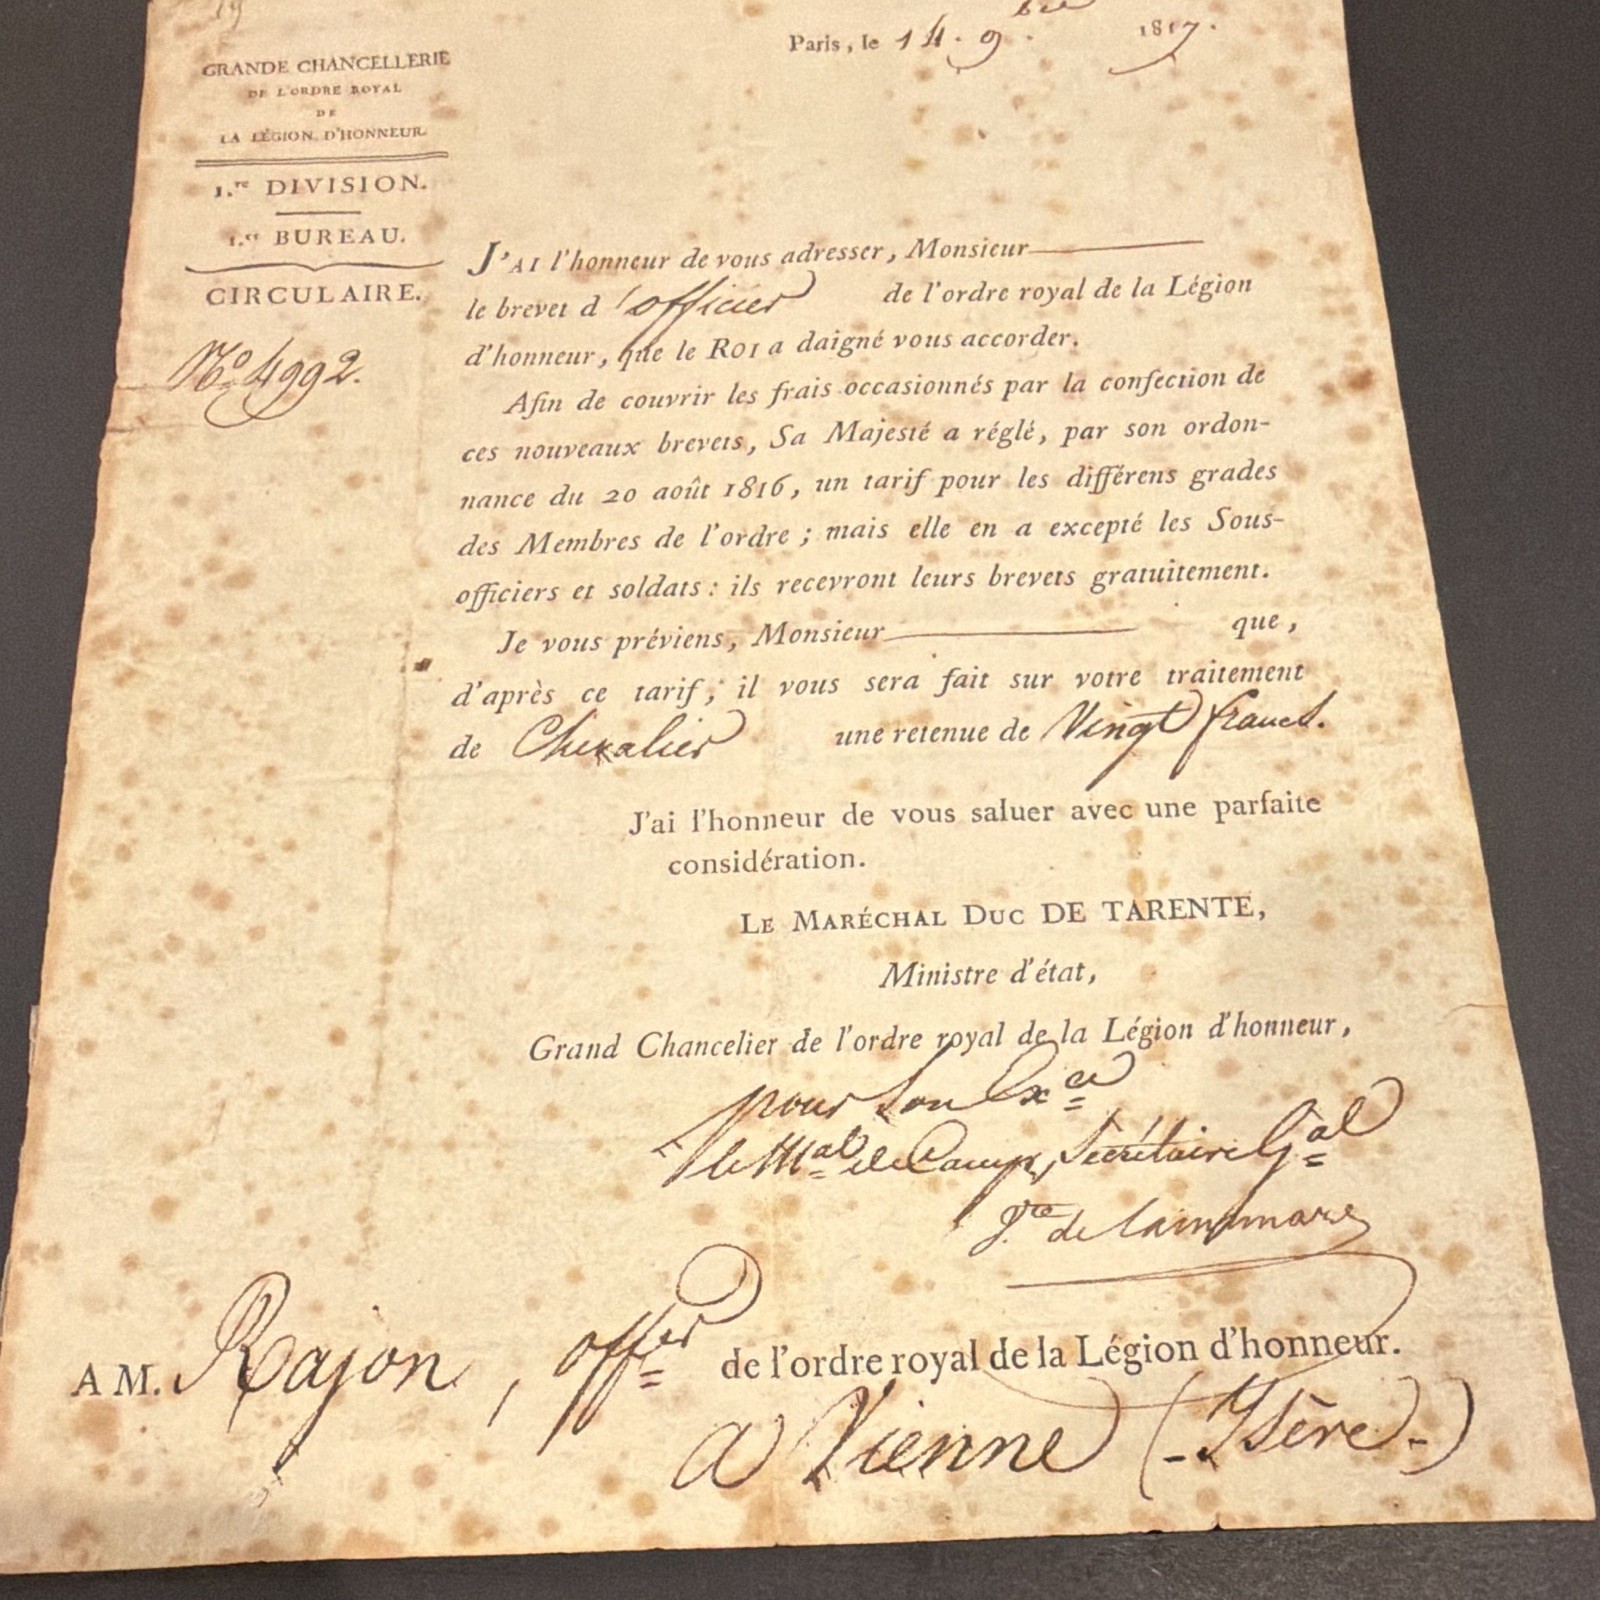 19
Paris, le 14. 9.bre 1817.
GRANDE CHANCELLERIE
DE L'ORDRE ROYAL
DE
LA LÉGION D'HONNEUR.
1.re DIVISION.
1.er BUREAU.
CIRCULAIRE.
No. 4992.
J'AI l'honneur de vous adresser, Monsieur
le brevet d'officier de l'ordre royal de la Légion
d'honneur, que le ROI a daigné vous accorder.
Afin de couvrir les frais occasionnés par la confection de
ces nouveaux brevets, Sa Majesté a réglé, par son ordon-
nance du 20 août 1816, un tarif pour les différens grades
des Membres de l'ordre ; mais elle en a excepté les Sous-
officiers et soldats : ils recevront leurs brevets gratuitement.
Je vous préviens, Monsieur que,
d'après ce tarif, il vous sera fait sur votre traitement
de Chevalier une retenue de Vingt francs.
J'ai l'honneur de vous saluer avec une parfaite
considération.
LE MARÉCHAL DUC DE TARENTE,
Ministre d'état,
Grand Chancelier de l'ordre royal de la Légion d'honneur,
pour Son Exce
le Mal de Camp, Secrétaire Gal
Vte de
A M. Rajon, offer de l'ordre royal de la Légion d'honneur.
à Vienne (-Isère-)